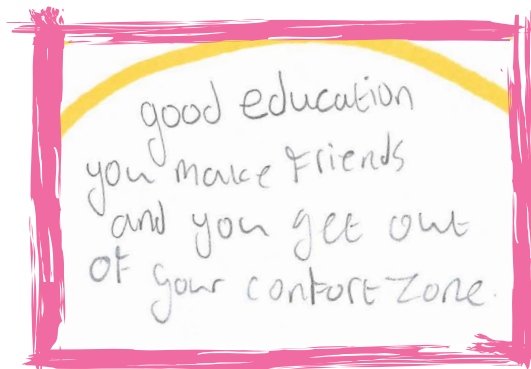 good education
you make friends
and you get out
of your confort zone.